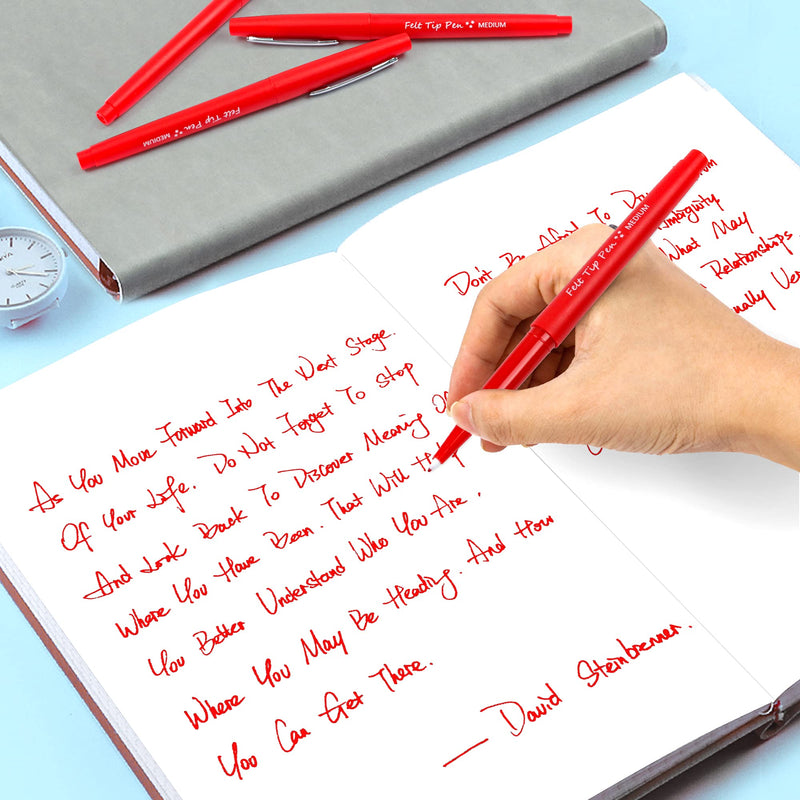 Felt Tip Pen MEDIUM
Felt Tip Pen MEDIUM
Felt Tip Pen MEDIUM
As You Move Forward Into The Next Stage.
Of Your Life. Do Not Forget To Stop
And Look Back To Discover Meaning
Where You Have Been. That Will
You Better Understand Who You Are,
Where You May Be Heading. And How
You Can Get There.
— David Steinbrenner.
Don't Be Afraid To
Ambiguity
What May
Relationships
Ver